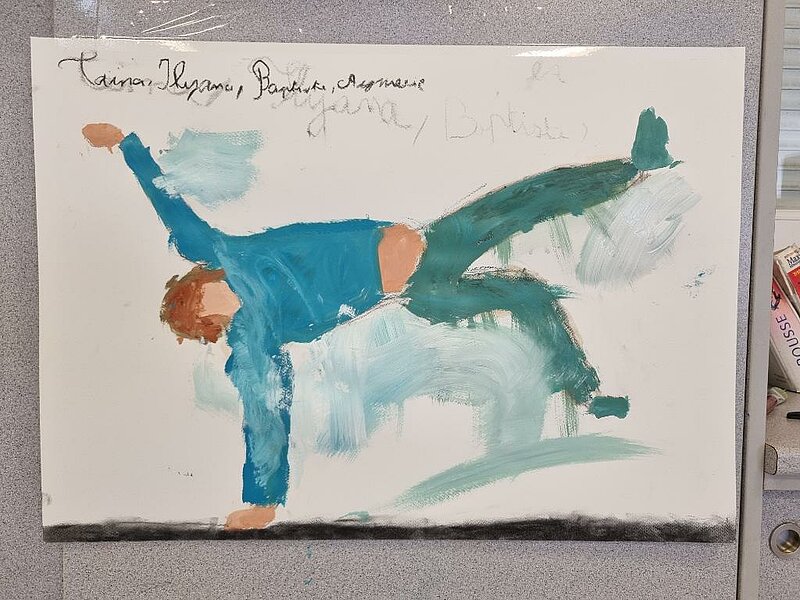 Taina, Ilyana, Baptiste, Aymeric
et
Ilyana, Baptiste,
OUSSE